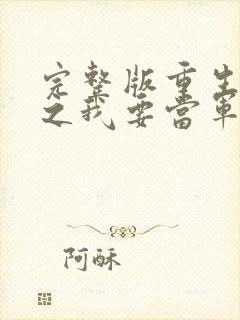 完整版重生
之我要当軍
阿酥